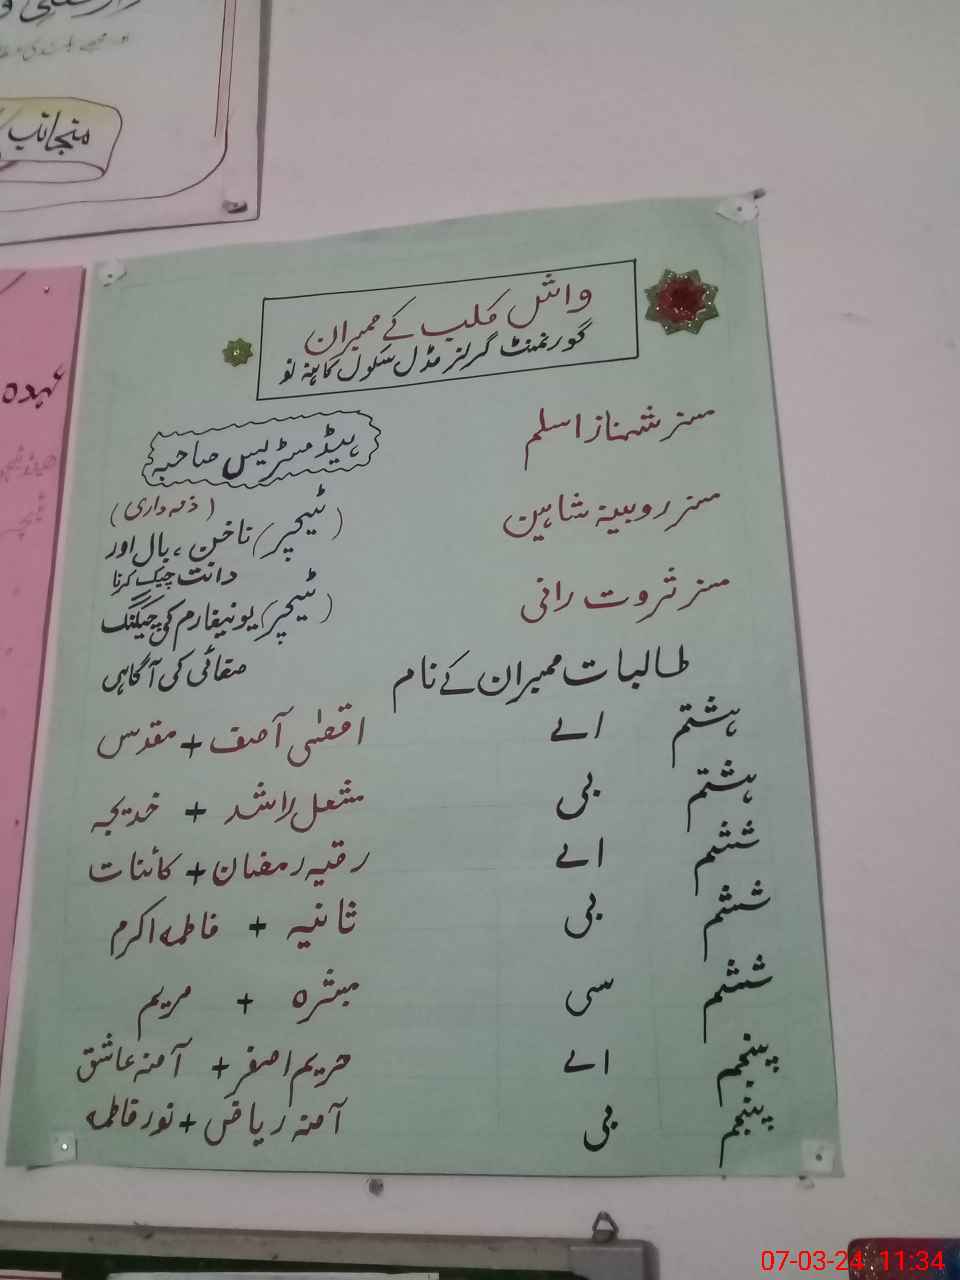 منجانب
عہدہ
واش کلب کے ممبران
گورنمنٹ گرلز مڈل سکول کاہنہ نو
مسز شہناز اسلم ہیڈ مسٹریس صاحبہ
(ذمہ داری)
مسز روبینہ شاہین (ٹیچر) ناخن، بال اور
دانت چیک کرنا
مسز ثروت رانی (ٹیچر) یونیفارم کی چیکنگ
صفائی کی آگاہی
طالبات ممبران کے نام
ہشتم اے اقصٰی آصف + مقدس
ہشتم بی مشعل راشد + خدیجہ
ششم اے رقیہ رمضان + کائنات
ششم بی ثانیہ + فاطمہ اکرم
ششم سی مبشرہ + مریم
پنجم اے حریم اصغر + آمنہ عاشق
پنجم بی آمنہ ریاض + نور فاطمہ
07-03-24 11:34